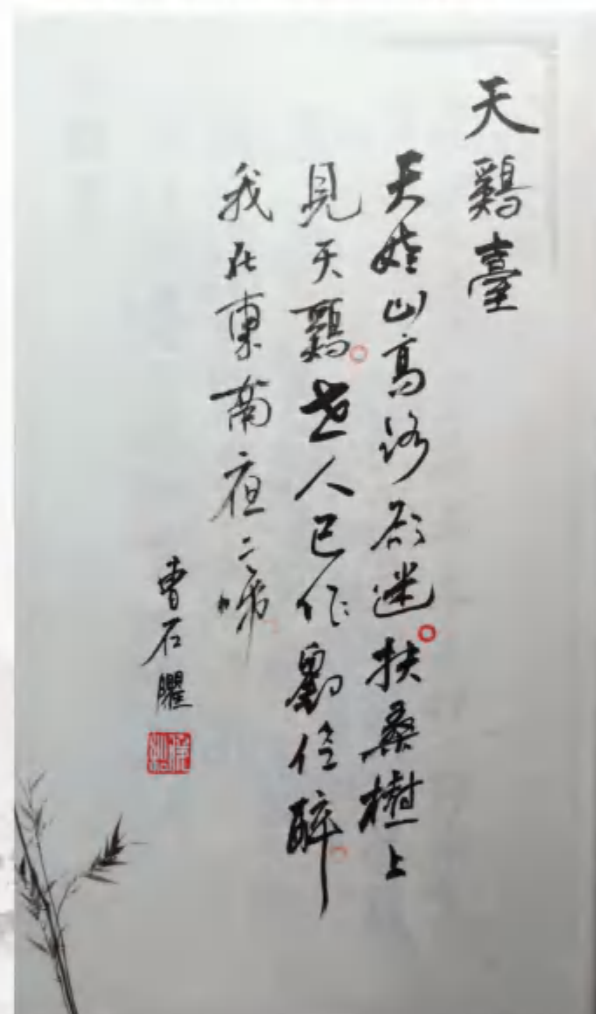 天鷄臺
天姥山高路欲迷。扶桑樹上
見天鷄。世人已作劉伶醉。
我在東南夜々啼。
曹石臞